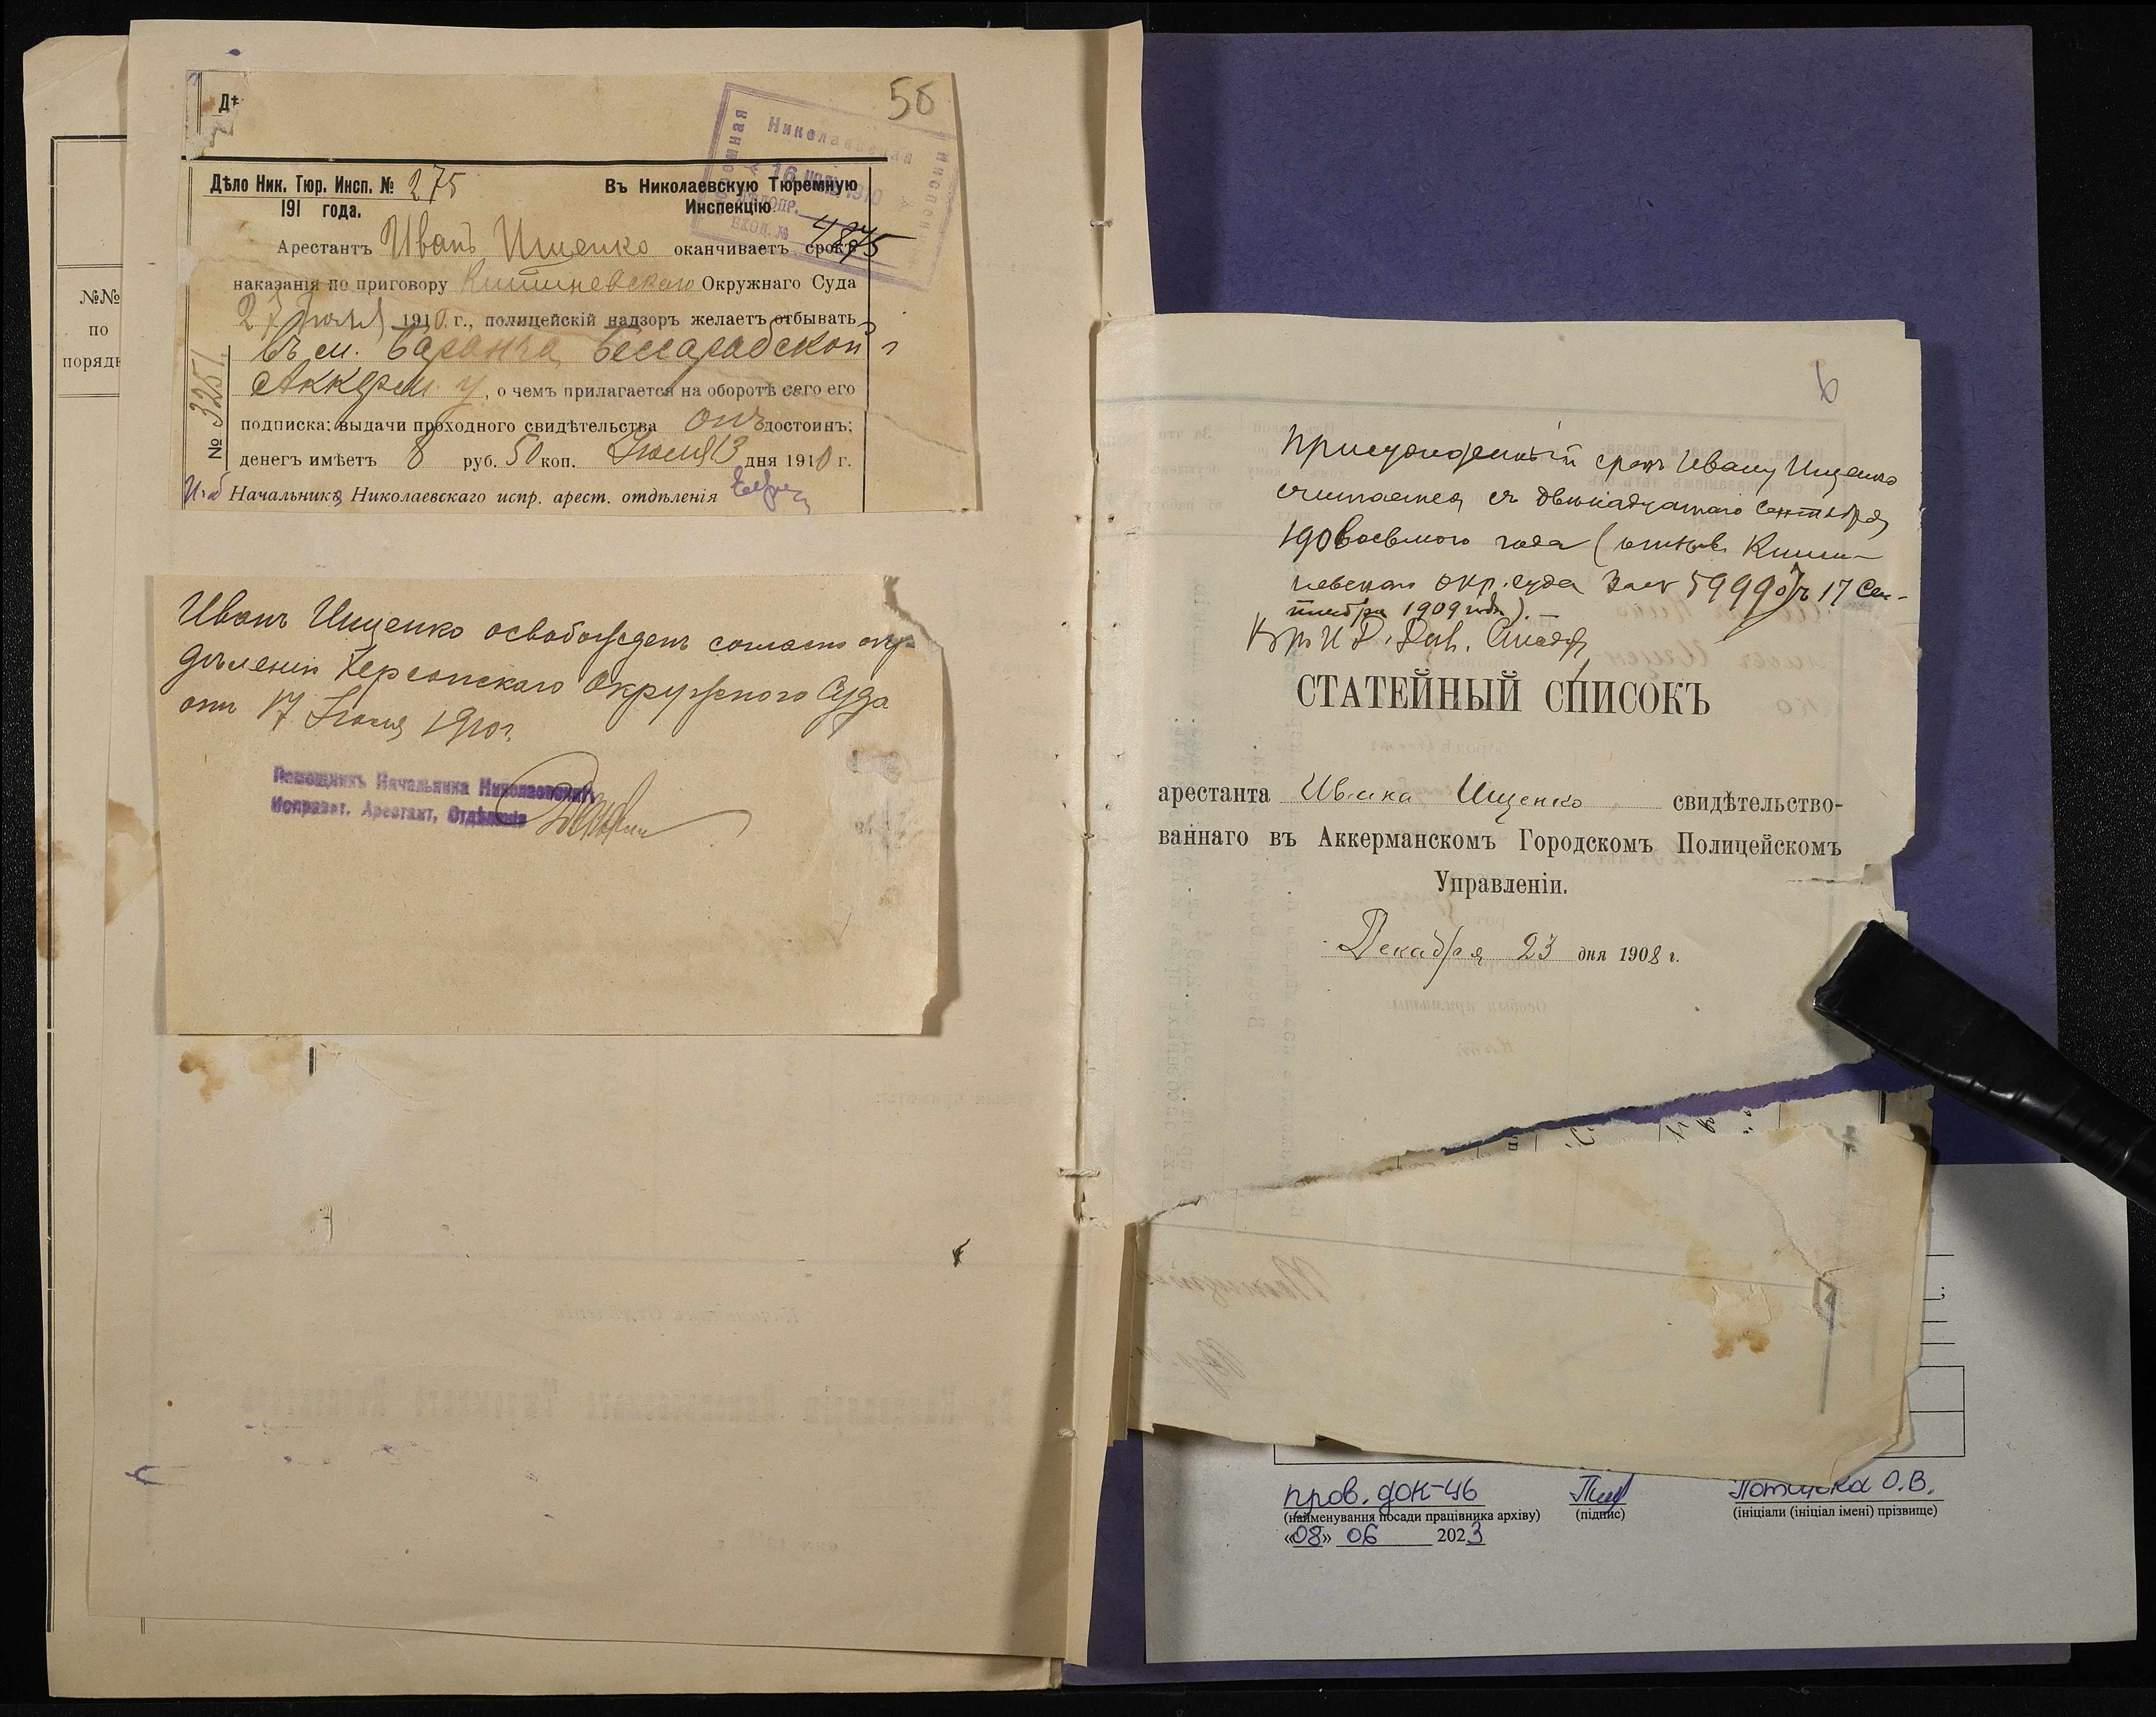 №№
по
Дѣ
50
Николаевская
16 ІЮЛ 1910
ВХОД. №
4875
Дѣло Ник. Тюр. Инсп. № 275
191 года.
Въ Николаевскую Тюремную
Инспекцію.
Арестантъ Иванъ Ищенко оканчиваетъ срокъ
наказанія по приговору Кишиневскаго Окружнаго Суда
27 Іюля 1910 г., полицейскій надзоръ желаетъ отбывать
въ м. Баранча, Бессарабской г
Аккерм. у, о чемъ прилагается на оборотѣ сего его
подписка; выдачи проходного свидѣтельства онъ достоинъ;
денегъ имѣетъ 8 руб. 50 коп. Іюля 13 дня 1910 г.
№ 3251
Начальника Николаевскаго испр. арест. отдѣленія
Иванъ Ищенко освобожденъ согласно опре-
дѣленія Херсонскаго Окружного Суда
отъ 17 Іюля 1910 г.
Помощникъ Начальника Николаевскаго
Исправит. Арестант. Отдѣленія
Присужденный срокъ Ивану Ищенко
считается съ двѣнадцатаго Сентября
190восьмого года (отзывъ Киши-
невскаго окр. суда за № 5999 отъ 17 Сен-
тября 1909 года).
СТАТЕЙНЫЙ СПИСОКЪ
арестанта Ивана Ищенко свидѣтельство-
ваннаго въ Аккерманскомъ Городскомъ Полицейскомъ
Управленіи.
Декабря 23 дня 1908 г.
пров. док-чб
(найменування посади працівника архіву) (підпис) (ініціали (ініціал імені) прізвище)
О.В.
«08» 06 2023